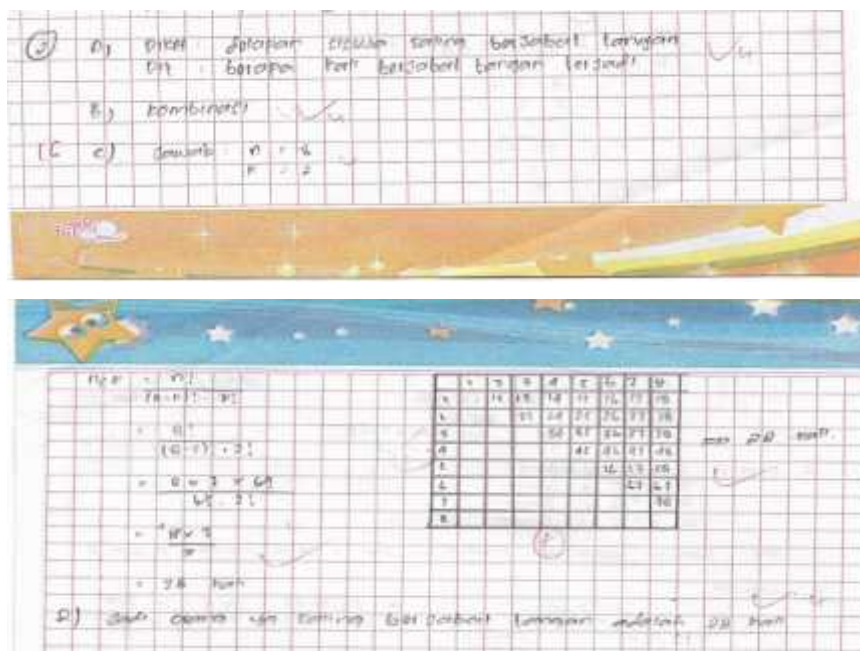 A) Diket : delapan siswa saling berjabat tangan
Dit : berapa kali berjabat tangan terjadi
B) kombinasi
C) Jawab : n = 8
r = 2
nCr = n!
(n-r)! . r!
= 8!
(8-2)! . 2!
= 8 x 7 x 6!
6! . 2!
= 8 x 7
2
= 28 kali
1 2 3 4 5 6 7 8
1 12 13 14 15 16 17 18
2 23 24 25 26 27 28
3 34 35 36 37 38
4 45 46 47 48
5 56 57 58
6 67 68
7 78
8
28 kali
D) Jadi saling berjabat tangan adalah 28 kali